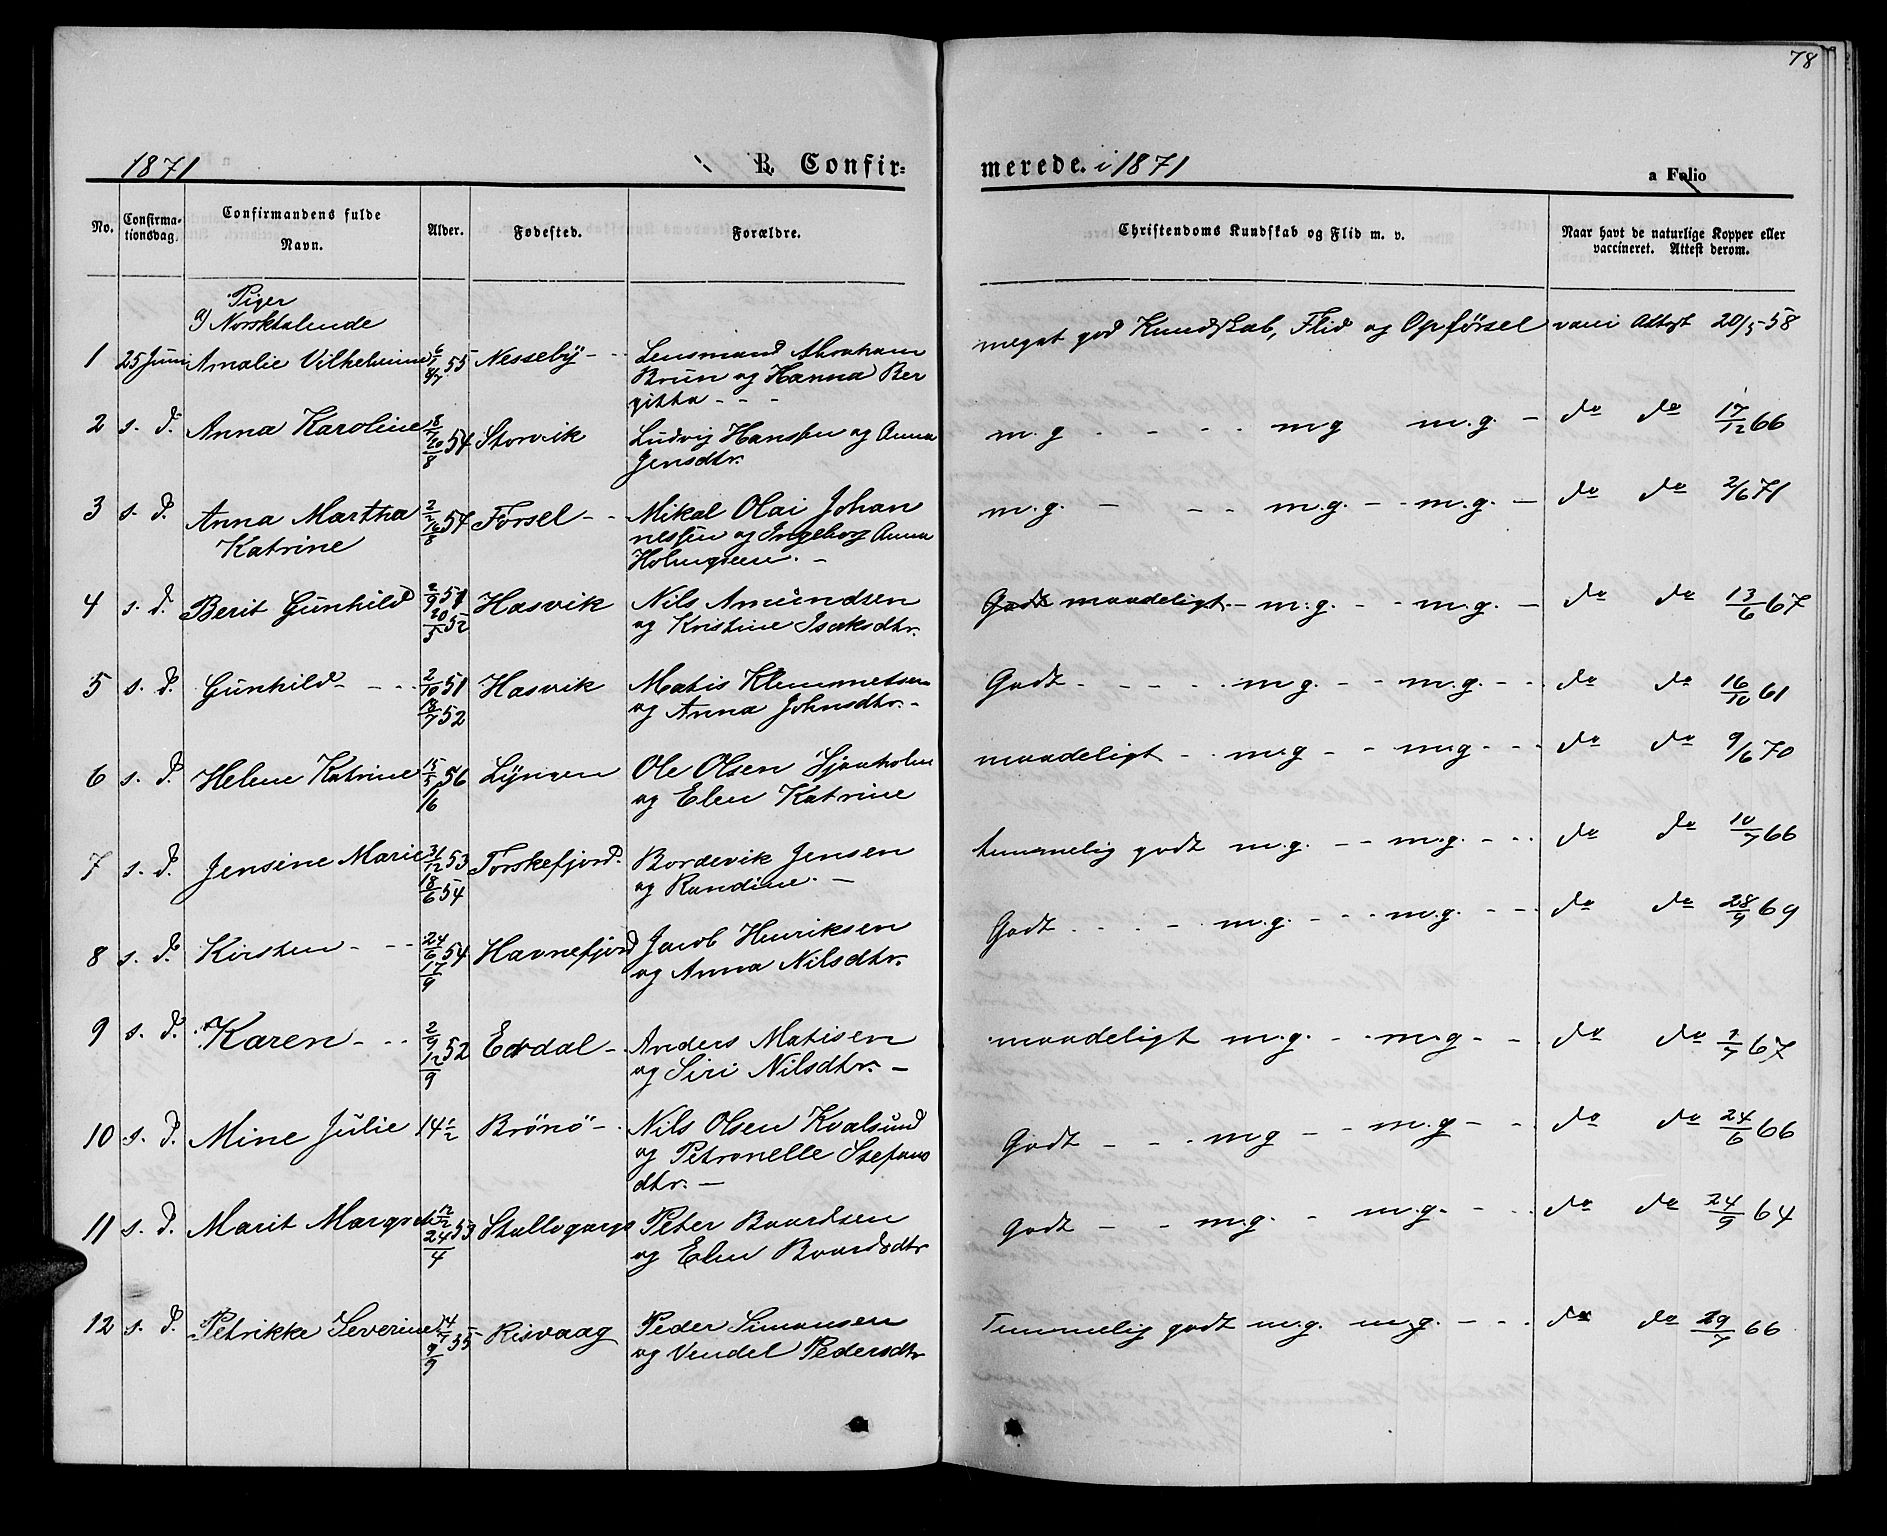 78
1871 B. Confir-
merede. i 1871
a Folio
No. Confirmationsdag. Confirmandens fulde Navn. Alder. Fødested. Forældre. Christendoms Kundskab og Flid m. v. Naar havt de naturlige Kopper eller vaccineret. Attest derom.
Piger
a) Norsktalende
1 25 Juni Amalie Vilhelmine 6/1 55 8/7 Nesseby - - Lensmand Abraham meget god Kundskab, Flid og Opførsel vacc Attest 20/5 58
Brun og Hanna Ber
gitta - - -
2 s. d. Anna Karoline 54 20/8 Storvik Ludvig Hanssen og Anna m.g - - - - m.g m.g. - do do 17/12 66
Jensdtr.
3 s. d. Anna Martha 2/2 54 16/8 Forsel - - Mikal Olai Johan m.g. - - m.g. - - m.g. - do do 2/6 71
Katrine nessen og Ingeborg Anna
4 s. d. Berit Gunhild 2/9 51 20/5 52 Hasvik Nils Amundsen Godt maadeligt. - m.g. - - m.g. - do do 13/6 67
og Kristine Isaksdtr.
5 s. d. Gunhild - - - 2/10 51 18/7 52 Hasvik Matis Klemmetsen Godt - - - - m.g. - - m.g. - - do do 16/10 61
og Anna Johnsdtr. -
6 s. d. Helene Katrine 15/5 56 1/6 Lyngen Ole Olsen maadeligt - - m.g - - m.g - - - do do 9/6 70
og Elen Katrine
7 s. d. Jensine Marie 31/12 53 18/6 54 Torskefjord. Bordevik Jensen temmelig godt m.g. - - m.g. - - - do do 10/7 66
og Randine. -
8 s. d. Kirsten - - - 24/6 54 17/9 Havnefjord Jacob Henriksen Godt - - - - m.g. - - - m.g. - - do do 28/9 69
og Anna Nilsdtr.
9 s. d. Karen - - - 2/9 52 12/9 Erdal - Anders Matisen maadeligt m.g. - - m.g - - do do 1/7 67
og Siri Nilsdtr. -
10 s. d. Mine Julie 14 1/2 Brönö - Nils Olsen Kvalsund Godt - - - m.g - - m.g - - do do 24/6 66
og Petronelle Stefans
dtr. -
11 s. d. Marit Margrete 12/2 53 24/4 Stallogargo Peter Baardsen Godt - - m.g. - m.g. - - do do 24/9 64
og Elen Baardsdtr
12 s. d. Petrikke Severine 14/7 55 9/9 Risvaag Peder Simonsen Temmelig godt m.g. m.g. - - - do do 29/7 66
og Vendel Pedersdtr